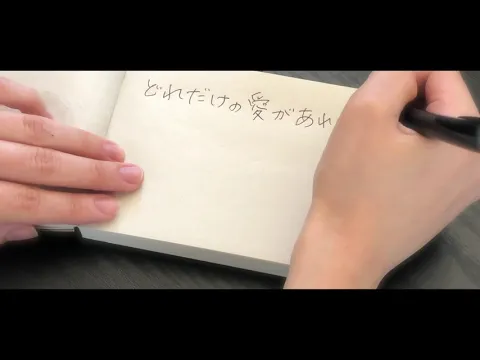 どれだけの愛があれ